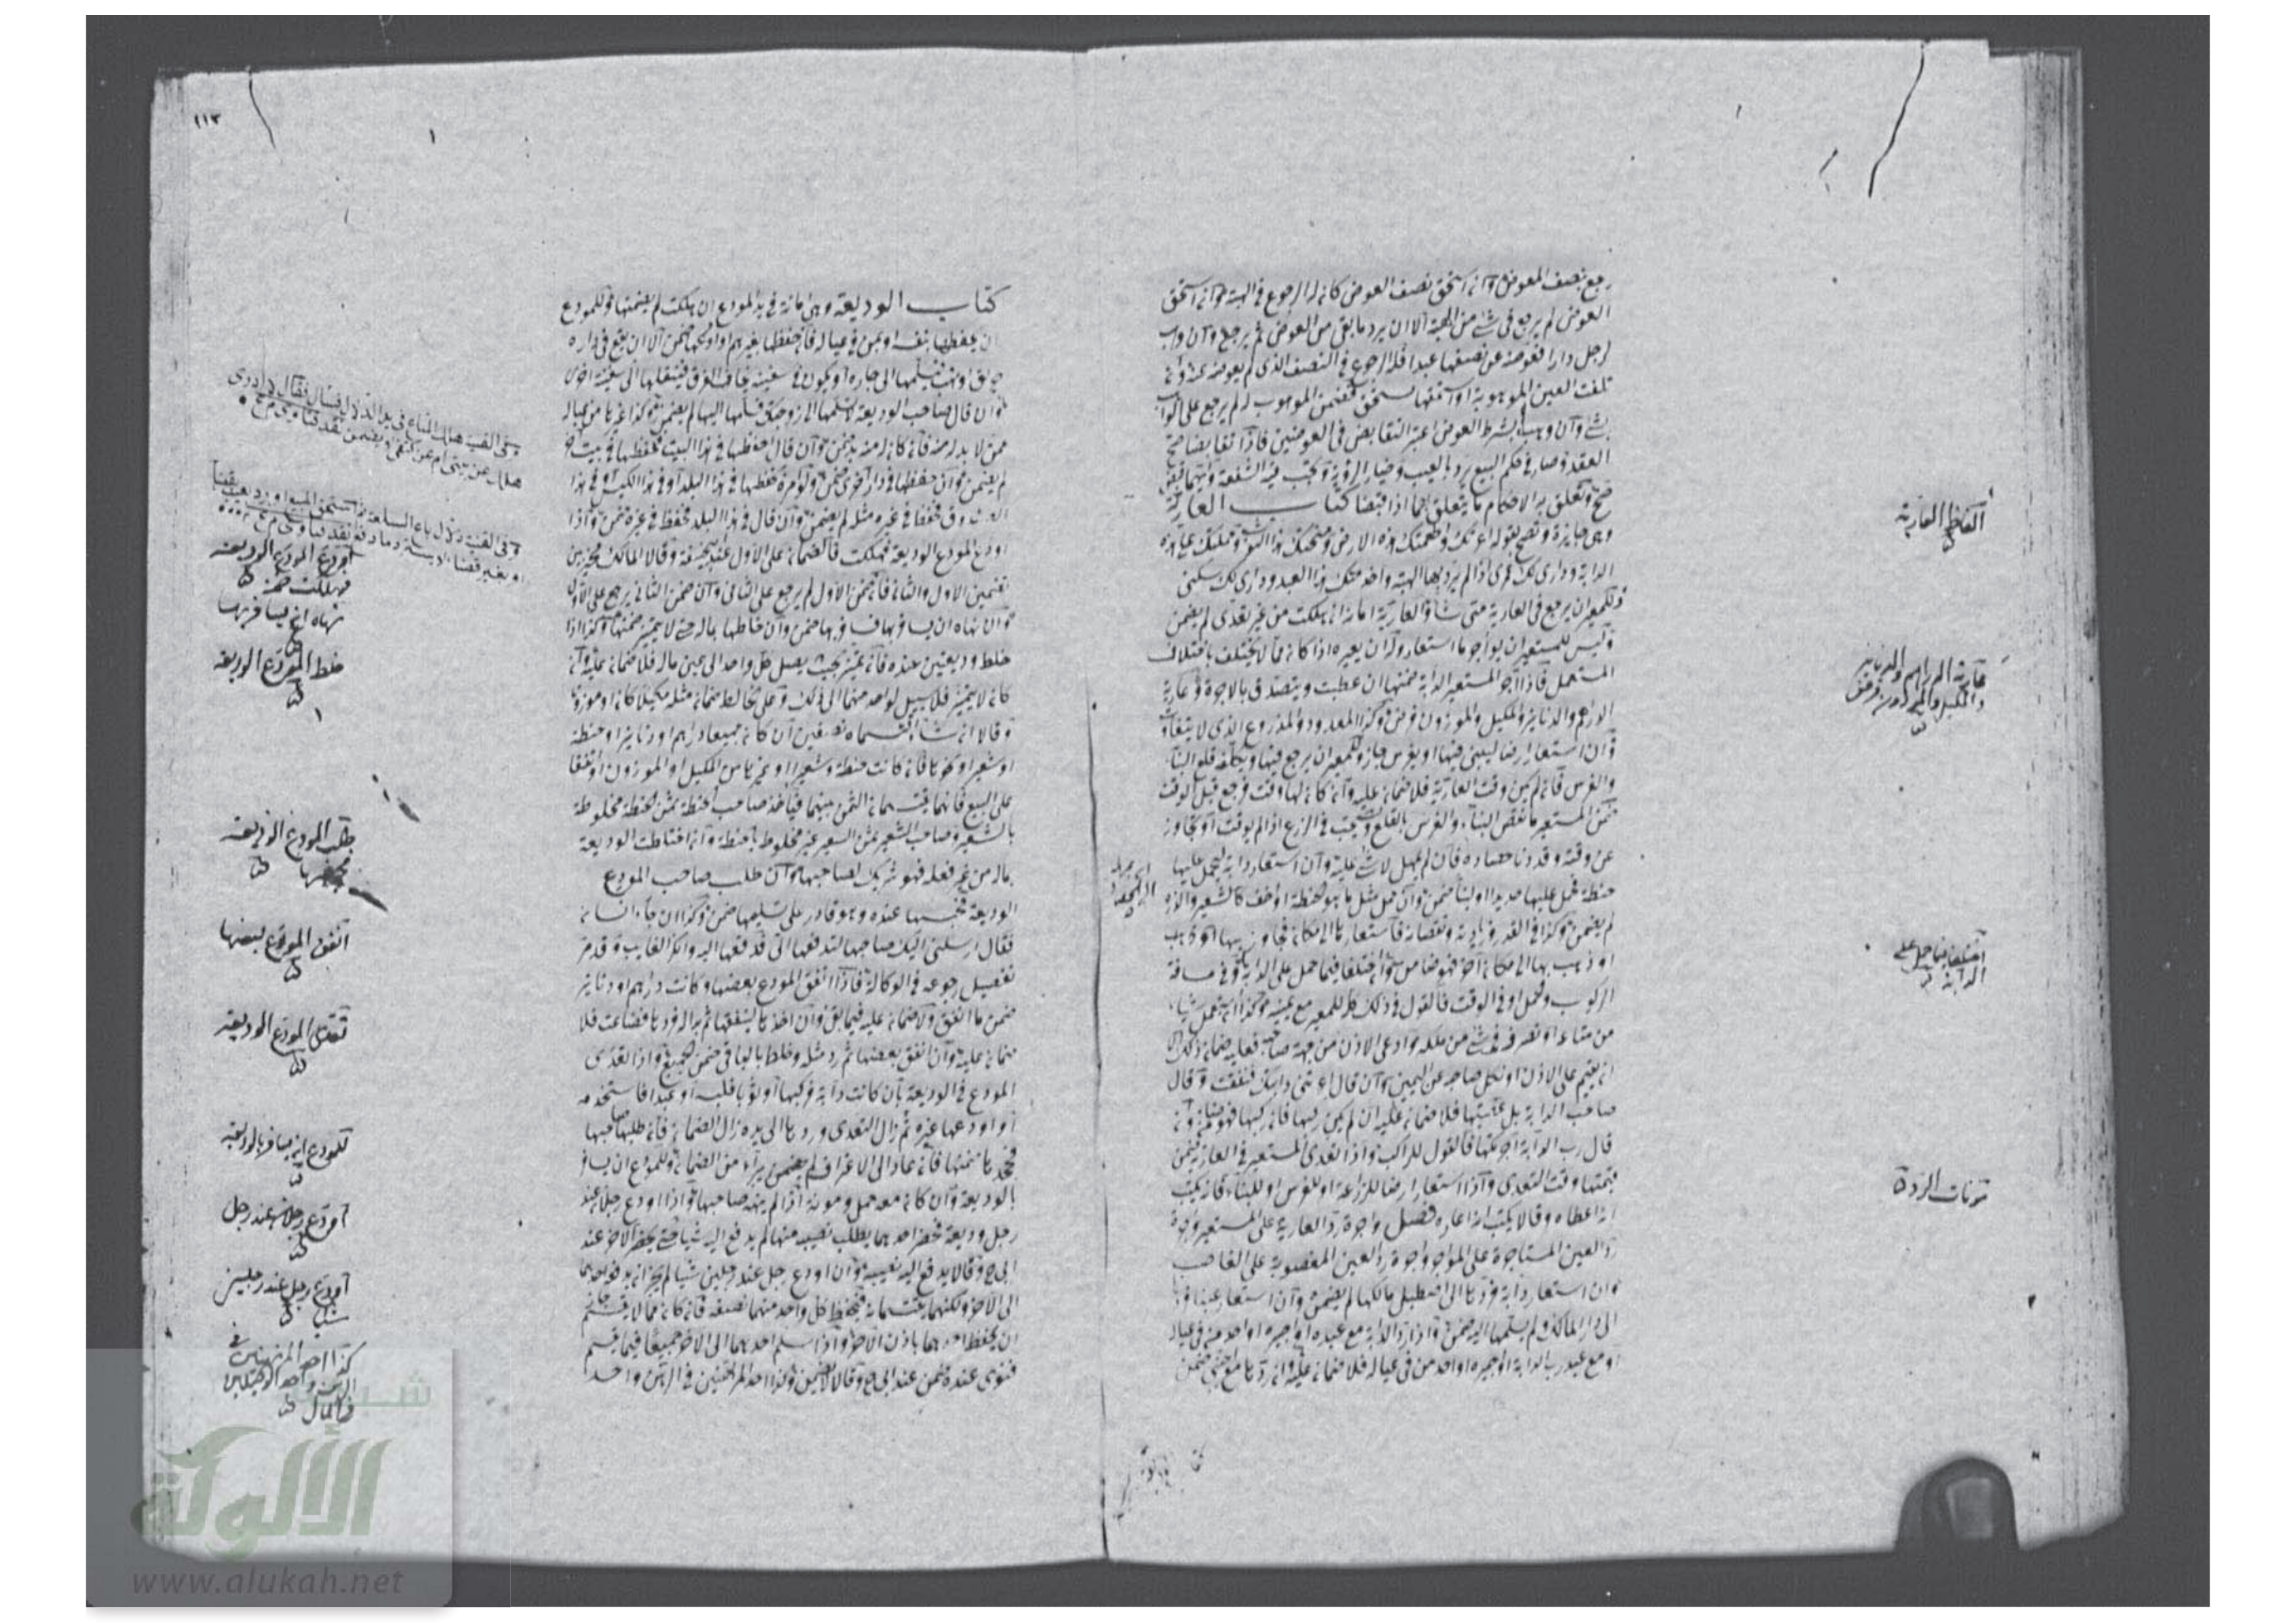 رجع بنصف المعوض وان استحق نصف العوض كان له الرجوع في الهبة وان استحق
العوض لم يرجع في شئ من الهبة الا ان يرد ما بقي من العوض ثم يرجع وان وهب
لرجل دارا فعوضه عن نصفها عبدا فله الرجوع في النصف الذي لم يعوضه عنه وان
تلفت العين الموهوبة او استحقها مستحق فضمن الموهوب له لم يرجع على الواهب
بشئ وان وهب بشرط العوض اعتبر التقابض في العوضين فاذا تقابضا صح
العقد وصار في حكم البيع يرد بالعيب وخيار الرؤية وتجب فيه الشفعة
كتاب العارية
وهي جايزة وتصح بقوله اعرتك واطعمتك هذه الارض ومنحتك هذا الثوب وحملتك على هذه
الدابة وداري لك عمرى اذا لم يرد بها الهبة واخدمتك هذا العبد وداري لك سكنى
وللمعير ان يرجع في العارية متى شاء والعارية امانة ان هلكت من غير تعدي لم يضمن
وليس للمستعير ان يؤاجر ما استعار وله ان يعيره اذا كان مما لا يختلف باختلاف
المستعمل فاذا آجر المستعير الدابة ضمنها ان عطبت ويتصدق بالاجرة وعارية
الدراهم والدنانير والمكيل والموزون قرض وكذا المعدود والمذروع الذي لا يتفاوت
وان استعار ارضا ليبني فيها او يغرس جاز وللمعير ان يرجع فيها ويكلفه قلع البناء
والغرس فان لم يكن وقت العارية فلا ضمان عليه وان كان لها وقت فرجع قبل الوقت
ضمن المستعير ما نقص البناء والغرس بالقلع في الزرع اذا لم يوقت او تجاوز
عن وقته وقد دنا حصاده فان لم يمهل لا شئ عليه وان استعار دابة ليحمل عليها
حنطة فحمل عليها حديدا او لبنا ضمن وان حمل مثل ما هو كحنطة او اخف كالشعير والذرة
لم يضمن وكذا في القدر وزيادته ونقصانه فاستعارها الى مكان فجاوز بها
او ذهب بها الى مكان آخر فهو ضامن اختلفا فيما حمل على الدابة او في مسافة
الركوب والحمل او في الوقت فالقول في ذلك كله للمعير مع يمينه
من متاع او تصرف في شئ من ملكه وادعى الاذن من جهة صاحبه فعليه ضمان ذلك الا
ان يقيم على الاذن او نكل صاحبه عن اليمين وان قال اعرتني دابتك فنفقت وقال
صاحب الدابة بل غصبتها فلا ضمان عليه ان لم يكن ركبها فان ركبها فهو ضامن وان
قال رب الدابة آجرتكها فالقول للراكب واذا تعدى المستعير في العارية ضمن
قيمتها وقت التعدي واذا استعار ارضا للزراعة او للغرس او للبناء فانه يكتب
انه اعطاه وقالا يكتب انه اعاره فصل واجرة رد العارية على المستعير واجرة
رد العين المستاجرة على المؤاجر واجرة رد العين المغصوبة على الغاصب
وان استعار دابة فردها الى اصطبل مالكها لم يضمن وان استعار عينا فردها
الى دار المالك ولم يسلمها اليه ضمن واذا رد الدابة مع عبده او اجيره او احد من في عياله
او مع عبد رب الدابة او اجيره او احد من في عياله فلا ضمان عليه وان ردها مع اجنبي ضمن
الفاظ العارية
عارية الدراهم والدنانير
والمكيل والموزون قرض
اختلفا فيما حمل على
الدابة
مؤنات الرد
١١٣
كتاب الوديعة وهي امانة في يد المودع ان هلكت لم يضمنها وللمودع
ان يحفظها بنفسه او بمن في عياله فان حفظها بغيرهم او اودعها ضمن الا ان يقع في داره
حريق او نهب فيسلمها الى جاره او يكون في سفينة يخاف الغرق فينقلها الى سفينة اخرى
وان قال صاحب الوديعة لا تسلمها الى زوجتك فسلمها اليها لم يضمن وكذا غيرها من عياله
ممن لا بد له منه فان كان له منه بد ضمن وان قال احفظها في هذا البيت فحفظها في بيت آخر
لم يضمن وان حفظها في دار اخرى ضمن ولو امره بحفظها في هذا البلد او في هذا الكيس او في هذا
الصندوق فحفظها في غيره مثله لم يضمن وان قال في هذا البلد فحفظ في غيره ضمن واذا
اودع المودع الوديعة فهلكت فالضمان على الاول عند ابي حنيفة وقالا المالك مخير بين
تضمين الاول والثاني فان ضمن الاول لم يرجع على الثاني وان ضمن الثاني يرجع على الاول
وان نهاه ان يسافر بها فسافر بها ضمن وان خلطها بماله حتى لا يتميز ضمنها وكذا اذا
خلط وديعتين عنده فان تميز بحيث يصل كل واحد الى عين ماله فلا ضمان عليه وان
كان لا يتميز فلا سبيل لواحد منهما الى ذلك وعلى الخالط ضمان مثله مكيلا كان او موزونا
وقالا ان شاء اقتسماه نصفين ان كان جميعا دراهم او دنانير او حنطة
او شعيرا او نحوها فان كانت حنطة وشعيرا او غيرها من المكيل او الموزون او اتفقا
على البيع فانهما يقتسمان الثمن بينهما فياخذ صاحب الحنطة بثمن الحنطة مخلوطة
بالشعير وصاحب الشعير بثمن الشعير غير مخلوط بالحنطة وان اختلطت الوديعة
بماله من غير فعله فهو شريك لصاحبها وان طلب صاحب المودع
الوديعة فحبسها عنده وهو قادر على تسليمها ضمن وكذا ان جاء انسان
فقال ارسلني اليك صاحبها لتدفعها الي فدفعها اليه وانكر الغايب وقد مر
تفصيل رجوعه في الوكالة فاذا انفق المودع بعضها وكانت دراهم او دنانير
ضمن ما انفق ولا ضمان عليه فيما بقي وان اخذها لينفقها ثم بدا له فردها فضاعت فلا
ضمان عليه وان انفق بعضها ثم رد مثله وخلط بالباقي ضمن الجميع واذا تعدى
المودع في الوديعة بان كانت دابة فركبها او ثوبا فلبسه او عبدا فاستخدمه
او اودعها غيره ثم زال التعدي وردها الى يده زال الضمان فان طلبها صاحبها
فجحدها ضمنها فان عاد الى الاعتراف لم يبرأ من الضمان وللمودع ان يسافر
بالوديعة وان كان معه حمل ومونة اذا لم ينهه صاحبها واذا اودع رجلان عند
رجل وديعة فحضر احدهما يطلب نصيبه منها لم يدفع اليه شيئا حتى يحضر الآخر عند
ابي ح وقالا يدفع اليه نصيبه وان اودع رجل عند رجلين شيئا لم يجز ان يدفعه احدهما
الى الآخر ولكنهما يقتسمانه فيحفظ كل واحد منهما نصفه فان كان مما لا يقسم جاز
ان يحفظ احدهما باذن الآخر واذا سلم احدهما الى الآخر جميعا فيما يقسم
فتوى عنده ضمن عند ابي ح وقالا لا يضمن وكذا احد المرتهنين في الرهن واحد
اودع المودع الوديعة
فهلكت ضمن
نهاه ان يسافر بها
خلط المودع الوديعة
طلب المودع الوديعة
فحبسها
انفق المودع بعضها
تعدى المودع الوديعة
للمودع ان يسافر بالوديعة
اودع رجلان عند رجل
اودع رجل عند رجلين
شيئا
كذا احد المرتهنين في
الرهن واحد الوكيلين
في المال
شبكة
الألوكة
www.alukah.net